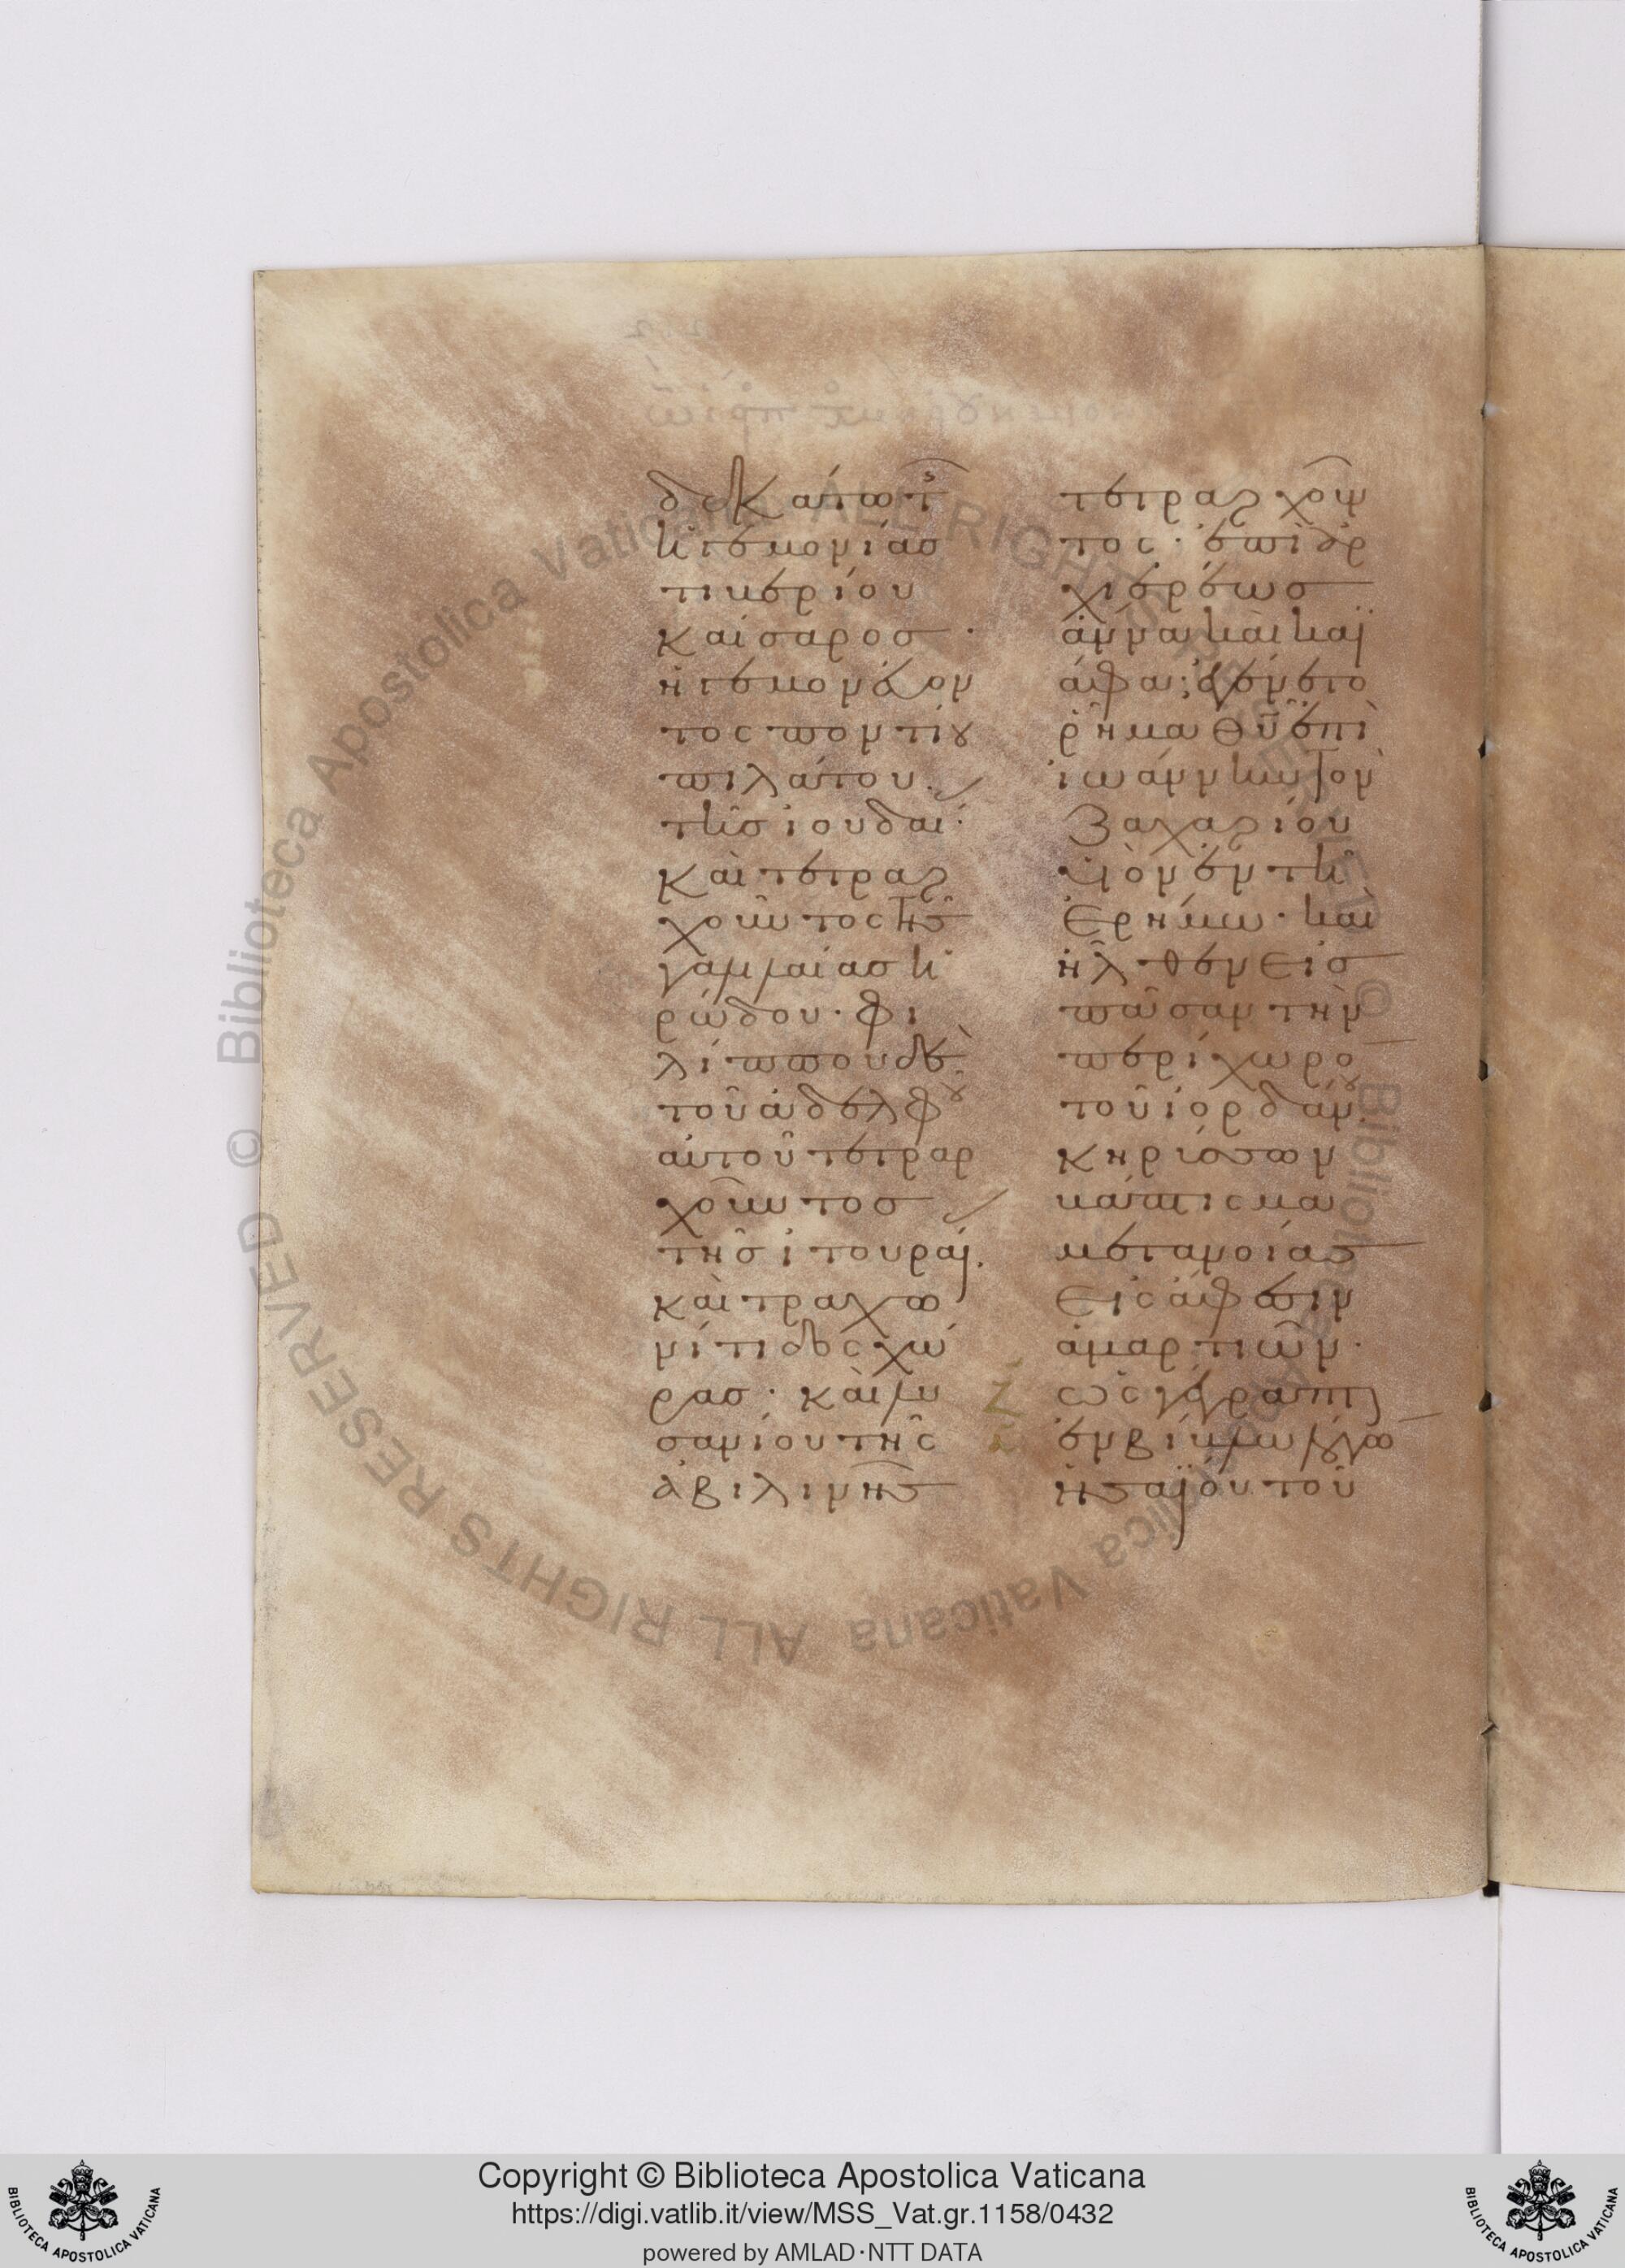 δεκάτω τῆς
ἡγεμονίασ
τιβερίου
καίσαροσ·
ἡγεμονεύον
τος ποντίου
πιλάτου
τῆσ ἰουδαί·
καὶ τετραρ
χοῦντος τῆς
γαλιλαίασ ἡ
ρώδου· φι
λίππου δὲ
τοῦ ἀδελφοῦ
αὐτοῦ τετραρ
χοῦντοσ
τῆσ ἰτουραί.
καὶ τραχω
νίτιδος χώ
ρασ· καὶ λυ
σανίου τῆς
ἀβιλινῆς
τετραρχοῦν
τος· ἐπὶ ἀρ
χιερέωσ
ἄννα καὶ καϊ
άφα· ἐγένετο
ῥῆμα θυ ἐπὶ
ἰωάννην τὸν
ζαχαρίου
υἱὸν ἐν τῆ
ἐρήμω· καὶ
ἦλθεν εἰσ
πᾶσαν τὴν
περίχωρο
τοῦ ἰορδάν
κηρύσσων
βάπτισμα
μετανοίας
εἰς ἄφεσιν
ἁμαρτιῶν·
ὡς γέγραπται
ἐν βίβλω λόγω
ἠσαΐου τοῦ
Copyright © Biblioteca Apostolica Vaticana
https://digi.vatlib.it/view/MSS_Vat.gr.1158/0432
powered by AMLAD·NTT DATA
BIBLIOTECA APOSTOLICA VATICANA
BIBLIOTECA APOSTOLICA VATICANA
© Biblioteca Apostolica Vaticana ALL RIGHTS RESERVED
© Biblioteca Apostolica Vaticana ALL RIGHTS RESERVED